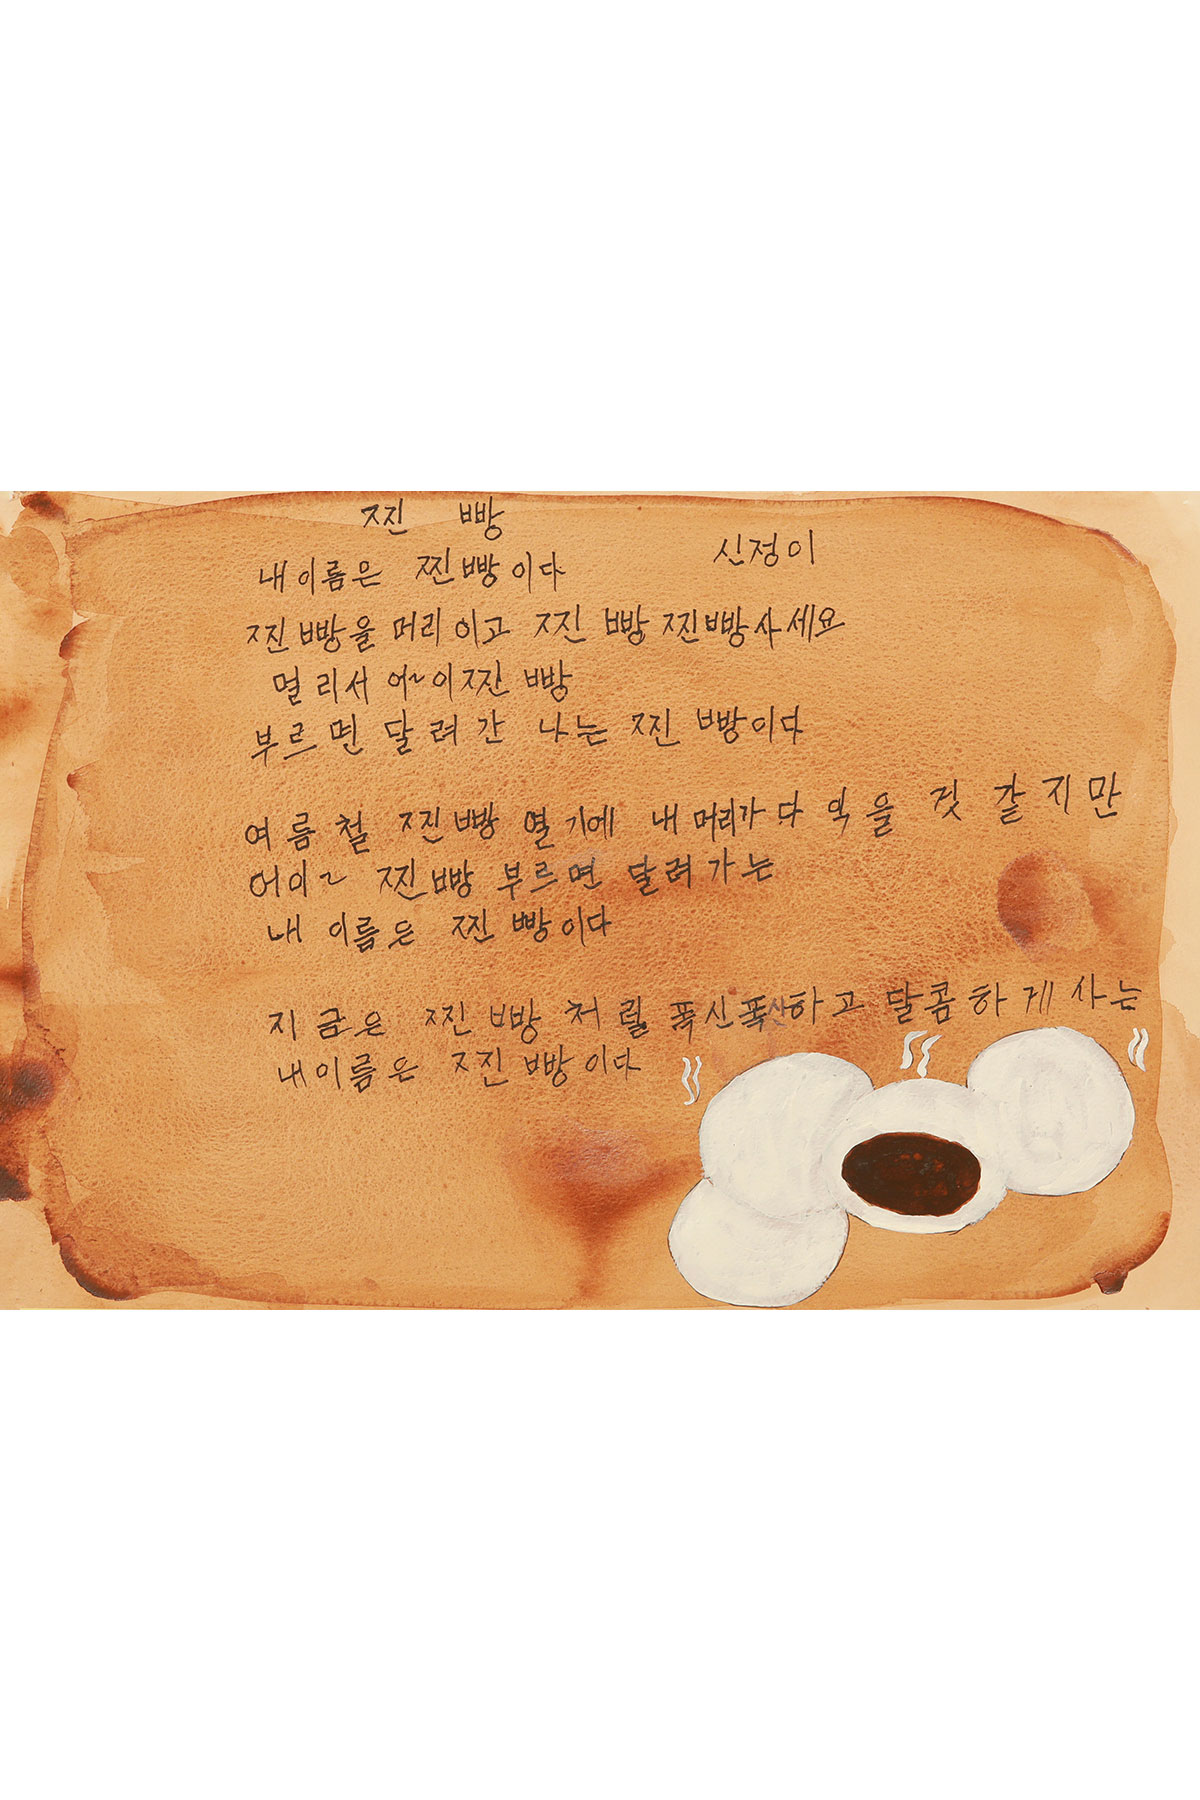 찐 빵
신정이
내 이름은 찐빵이다
찐빵을 머리 이고 찐 빵 찐빵 사세요
멀리서 어~이 찐 빵
부르면 달려간 나는 찐 빵이다
여름철 찐빵 열기에 내 머리가 다 익을 것 같지만
어이~ 찐빵 부르면 달려가는
내 이름은 찐 빵이다
지금은 찐 빵 처럴 폭신폭신하고 달콤하게 사는
내 이름은 찐 빵이다